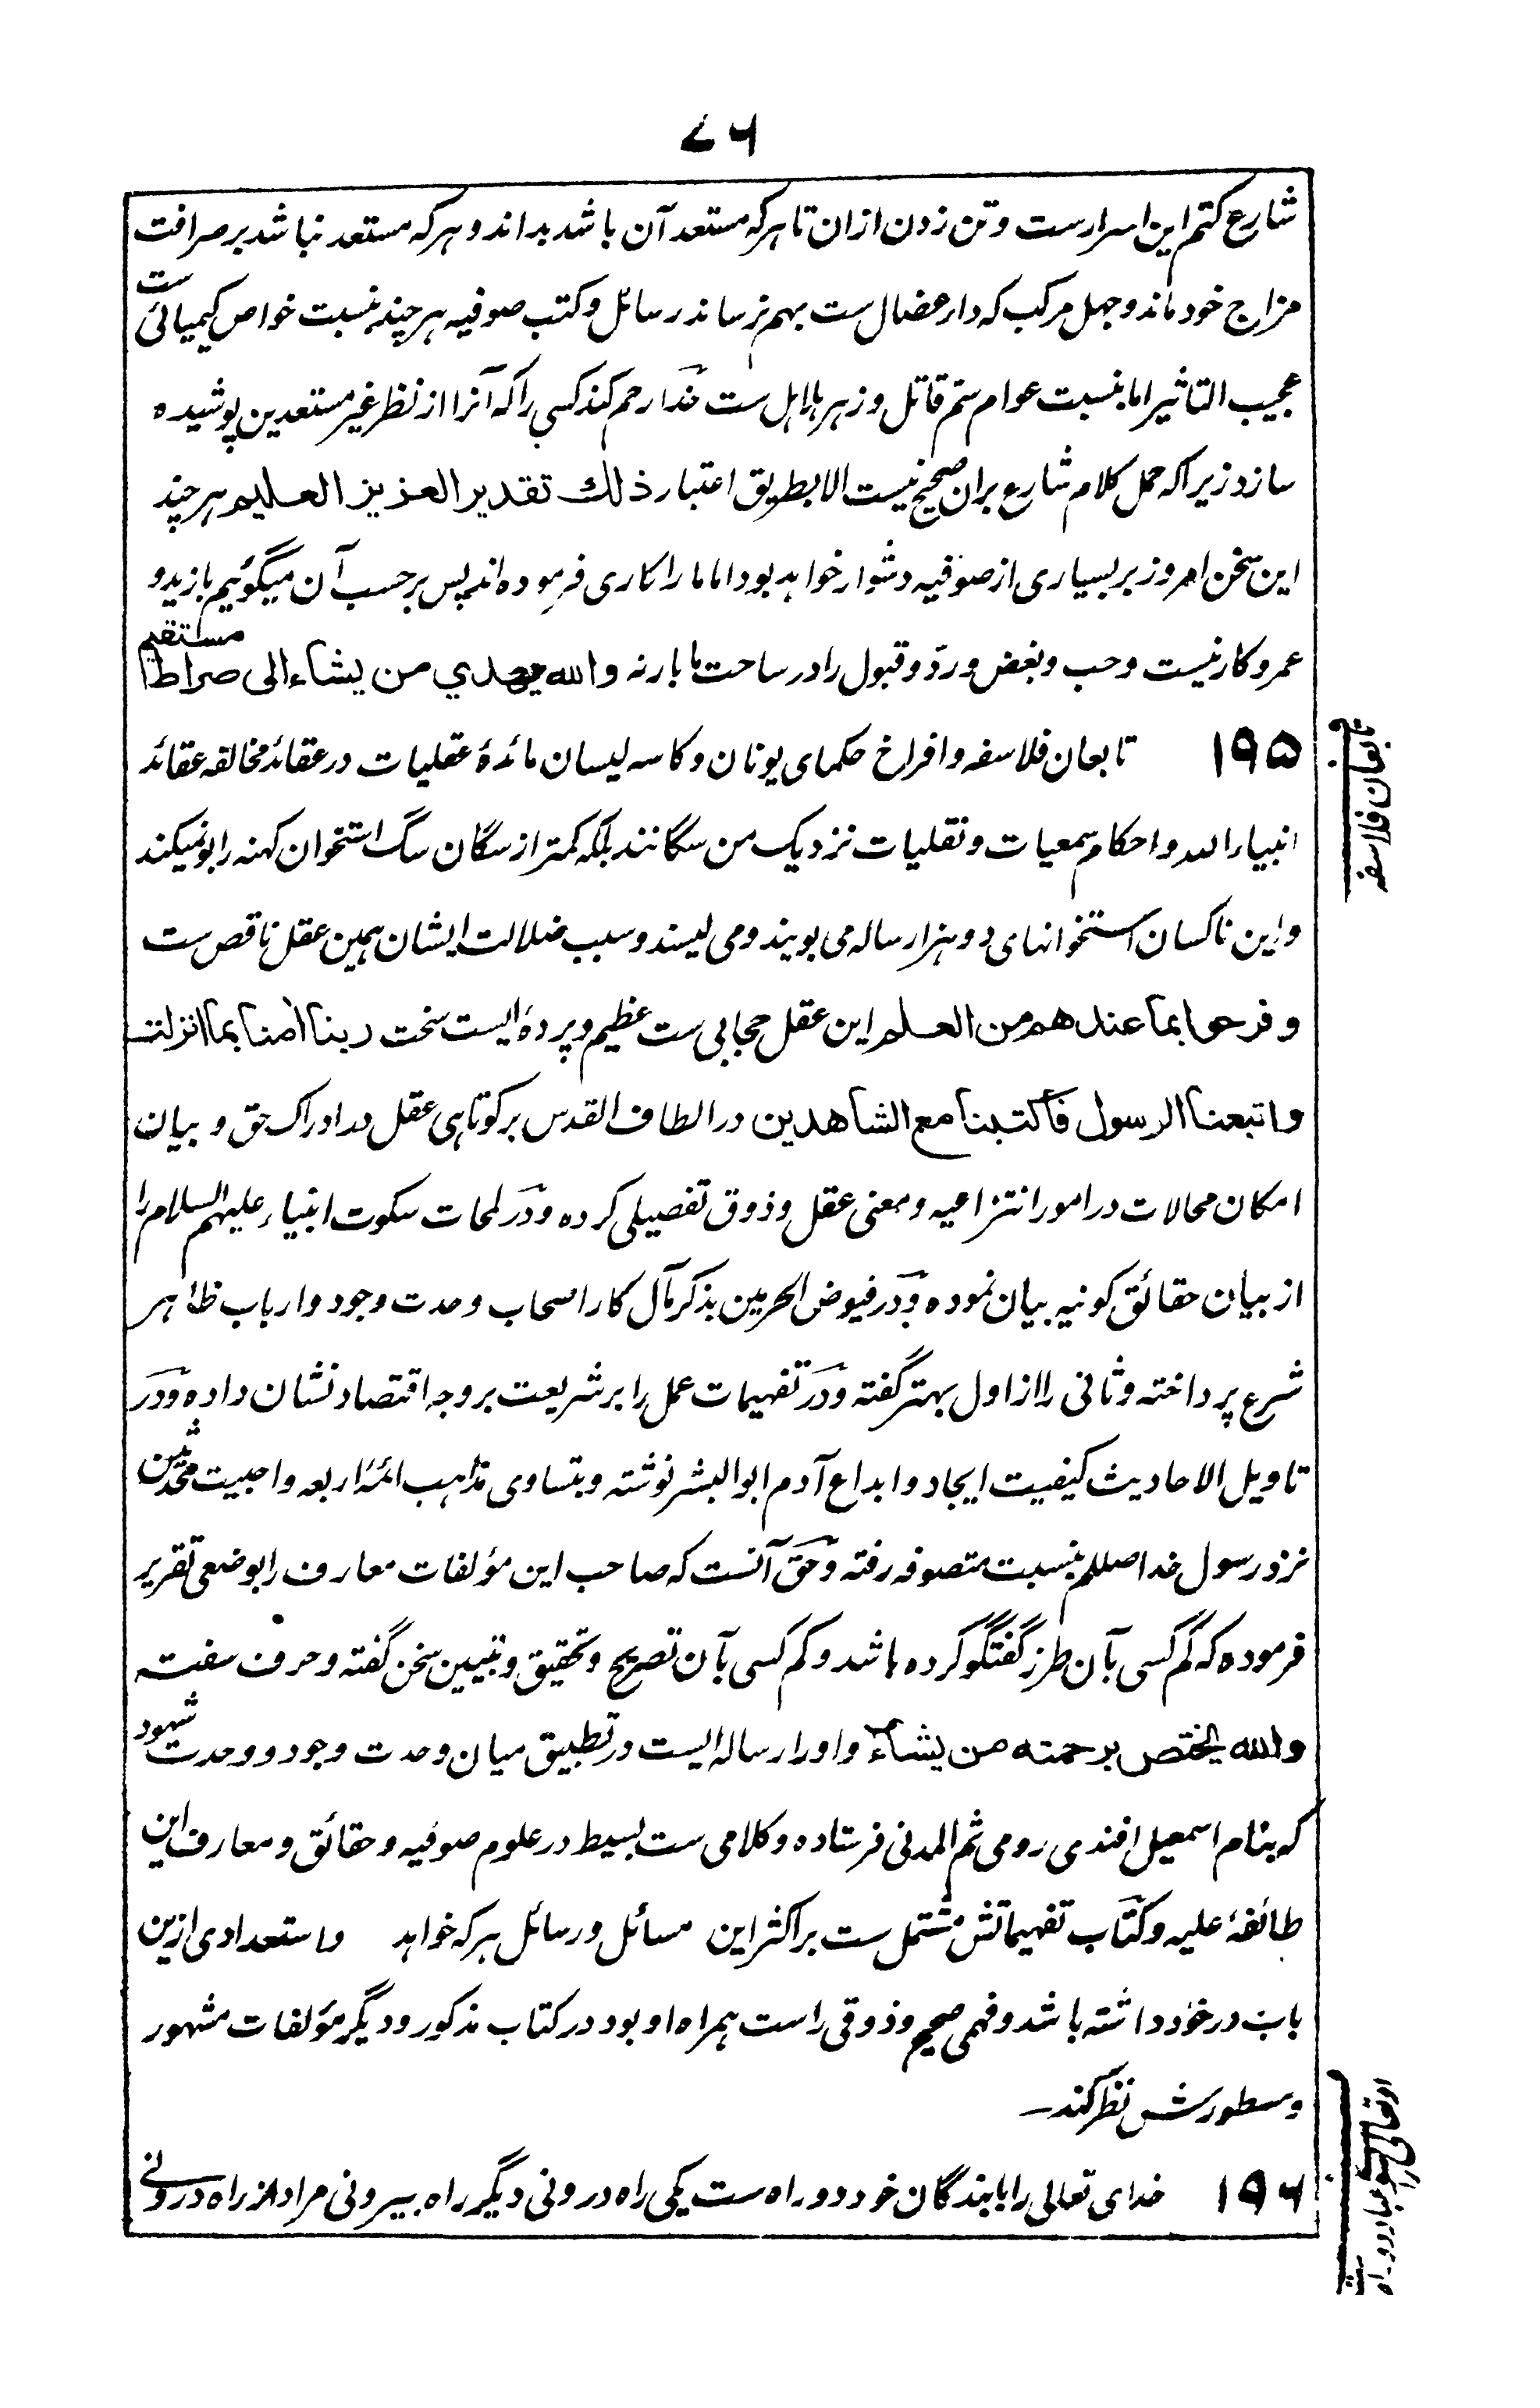 ۷۶
شارع کتم این اسرارست و تن زدن ازان تا هرکه مستعد آن باشد بداند و هرکه مستعد نباشد بر صرافت
مزاج خود ماند و جهل مرکب که داء عضال ست بهم نرساند رسائل و کتب صوفیه هرچند بنسبت خواص کیمیائی ست
عجیب التاثیر اما بنسبت عوام سم قاتل و زهر هلاهل ست خدا رحم کند کسی را که آنرا از نظر غیر مستعدین پوشیده
سازد زیرا که حمل کلام شارع بران صحیح نیست الا بطریق اعتبار ذلك تقدير العزيز العليم هرچند
این سخن امروز بر بسیاری از صوفیه دشوار خواهد بود اما ما را کاری فرموده اند پس بر حسب آن میگوئیم با زید و
عمرو کار نیست و حب و بغض و رد و قبول را در ساحت ما بار نه والله يهدي من يشاء الى صراط مستقيم
۱۹۵ تابعان فلاسفه و افراخ حکمای یونان و کاسه لیسان مائدهٔ عقلیات در عقائد مخالفه عقائد
انبیاء الله و احکام سمعیات و نقلیات نزدیک من سگانند بلکه کمتر از سگان سگ استخوان کهنه را بو نمیکند
و این ناکسان استخوانهای دو هزار ساله می بویند و می لیسند و سبب ضلالت ایشان همین عقل ناقص ست
و فرحوا بما عندهم من العلم این عقل حجابی ست عظیم و پرده ایست سخت ربنا امنا بما انزلت
واتبعنا الرسول فاكتبنا مع الشاهدين در الطاف القدس بر کوتاهی عقل در ادراک حق و بیان
امکان محالات در امور انتزاعیه و معنی عقل و ذوق تفصیلی کرده و در لمحات سکوت انبیاء علیهم السلام را
از بیان حقائق کونیه بیان نموده و در فیوض الحرمین بذکر مآل کار اصحاب وحدت وجود و ارباب ظاهر
شرع پرداخته و ثانی را از اول بهتر گفته و در تفهیمات عمل را بر شریعت بر وجه اقتصاد نشان داده و در
تاویل الاحادیث کیفیت ایجاد و ابداع آدم ابو البشر نوشته و بتساوی مذاهب ائمهٔ اربعه و احبیت محدثین
نزد رسول خدا صللم بنسبت متصوفه رفته و حق آنست که صاحب این مؤلفات معارف را بوضعی تقریر
فرموده که کم کسی بآن طرز گفتگو کرده باشد و کم کسی بآن تصریح و تحقیق و تبیین سخن گفته و حرف سفته
والله يختص برحمته من يشاء و او را رساله ایست در تطبیق میان وحدت وجود و وحدت شهود
که بنام اسمعیل افندی رومی ثم المدنی فرستاده و کلامی ست بسیط در علوم صوفیه و حقائق و معارف این
طائفهٔ علیه و کتاب تفهیماتش مشتمل ست بر اکثر این مسائل و رسائل هرکه خواهد و استعدادی ازین
باب در خود داشته باشد و فهمی صحیح و ذوقی راست همراه او بود در کتاب مذکور و دیگر مؤلفات مشهور
و مسطورش نظر کند
۱۹۶ خدای تعالی را با بندگان خود دو راه ست یکی راه درونی دیگر راه بیرونی مراد از راه درونی
تابعان فلاسفه